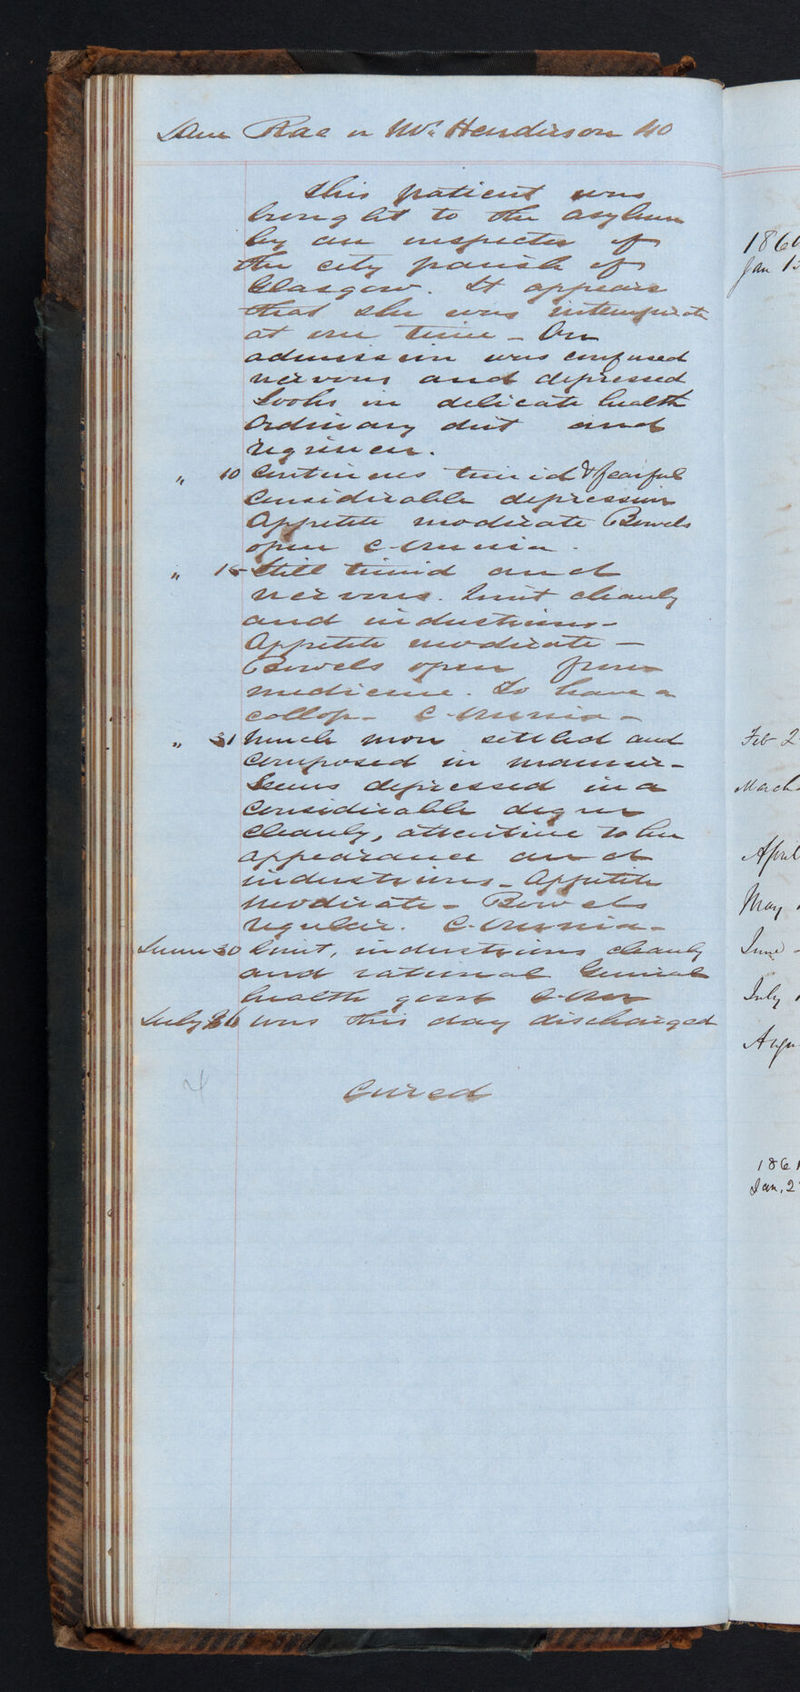 Jane Rae or Mrs Henderson 40
This patient was
brought to the asylum
by an inspector of
the city parish of
Glasgow. It appears
that she was intemperate
at one time - On
admission was confused
nervous and depressed
Looks in delicate health
Ordinary diet and
regimen.
" 10 Continues timid & fearful
Considerable depression
Appetite moderate Bowels
open C-
" 15 Still timid and
nervous. Quiet cleanly
and industrious -
Appetite moderate -
Bowels open from
medicine. To have a
collop - C-
" 31 Much more settled and
Composed in manner -
Seems depressed in a
Considerable degree
Cleanly, attentive to her
appearance and
industrious - Appetite
moderate - Bowels
regular. C-
June 30 Quiet, industrious cleanly
and rational General
health good
July 26 Was this day discharged
Cured
186
Jan 15
Feb 2
March
April
May
June
July
Augu
1861
Jan. 2